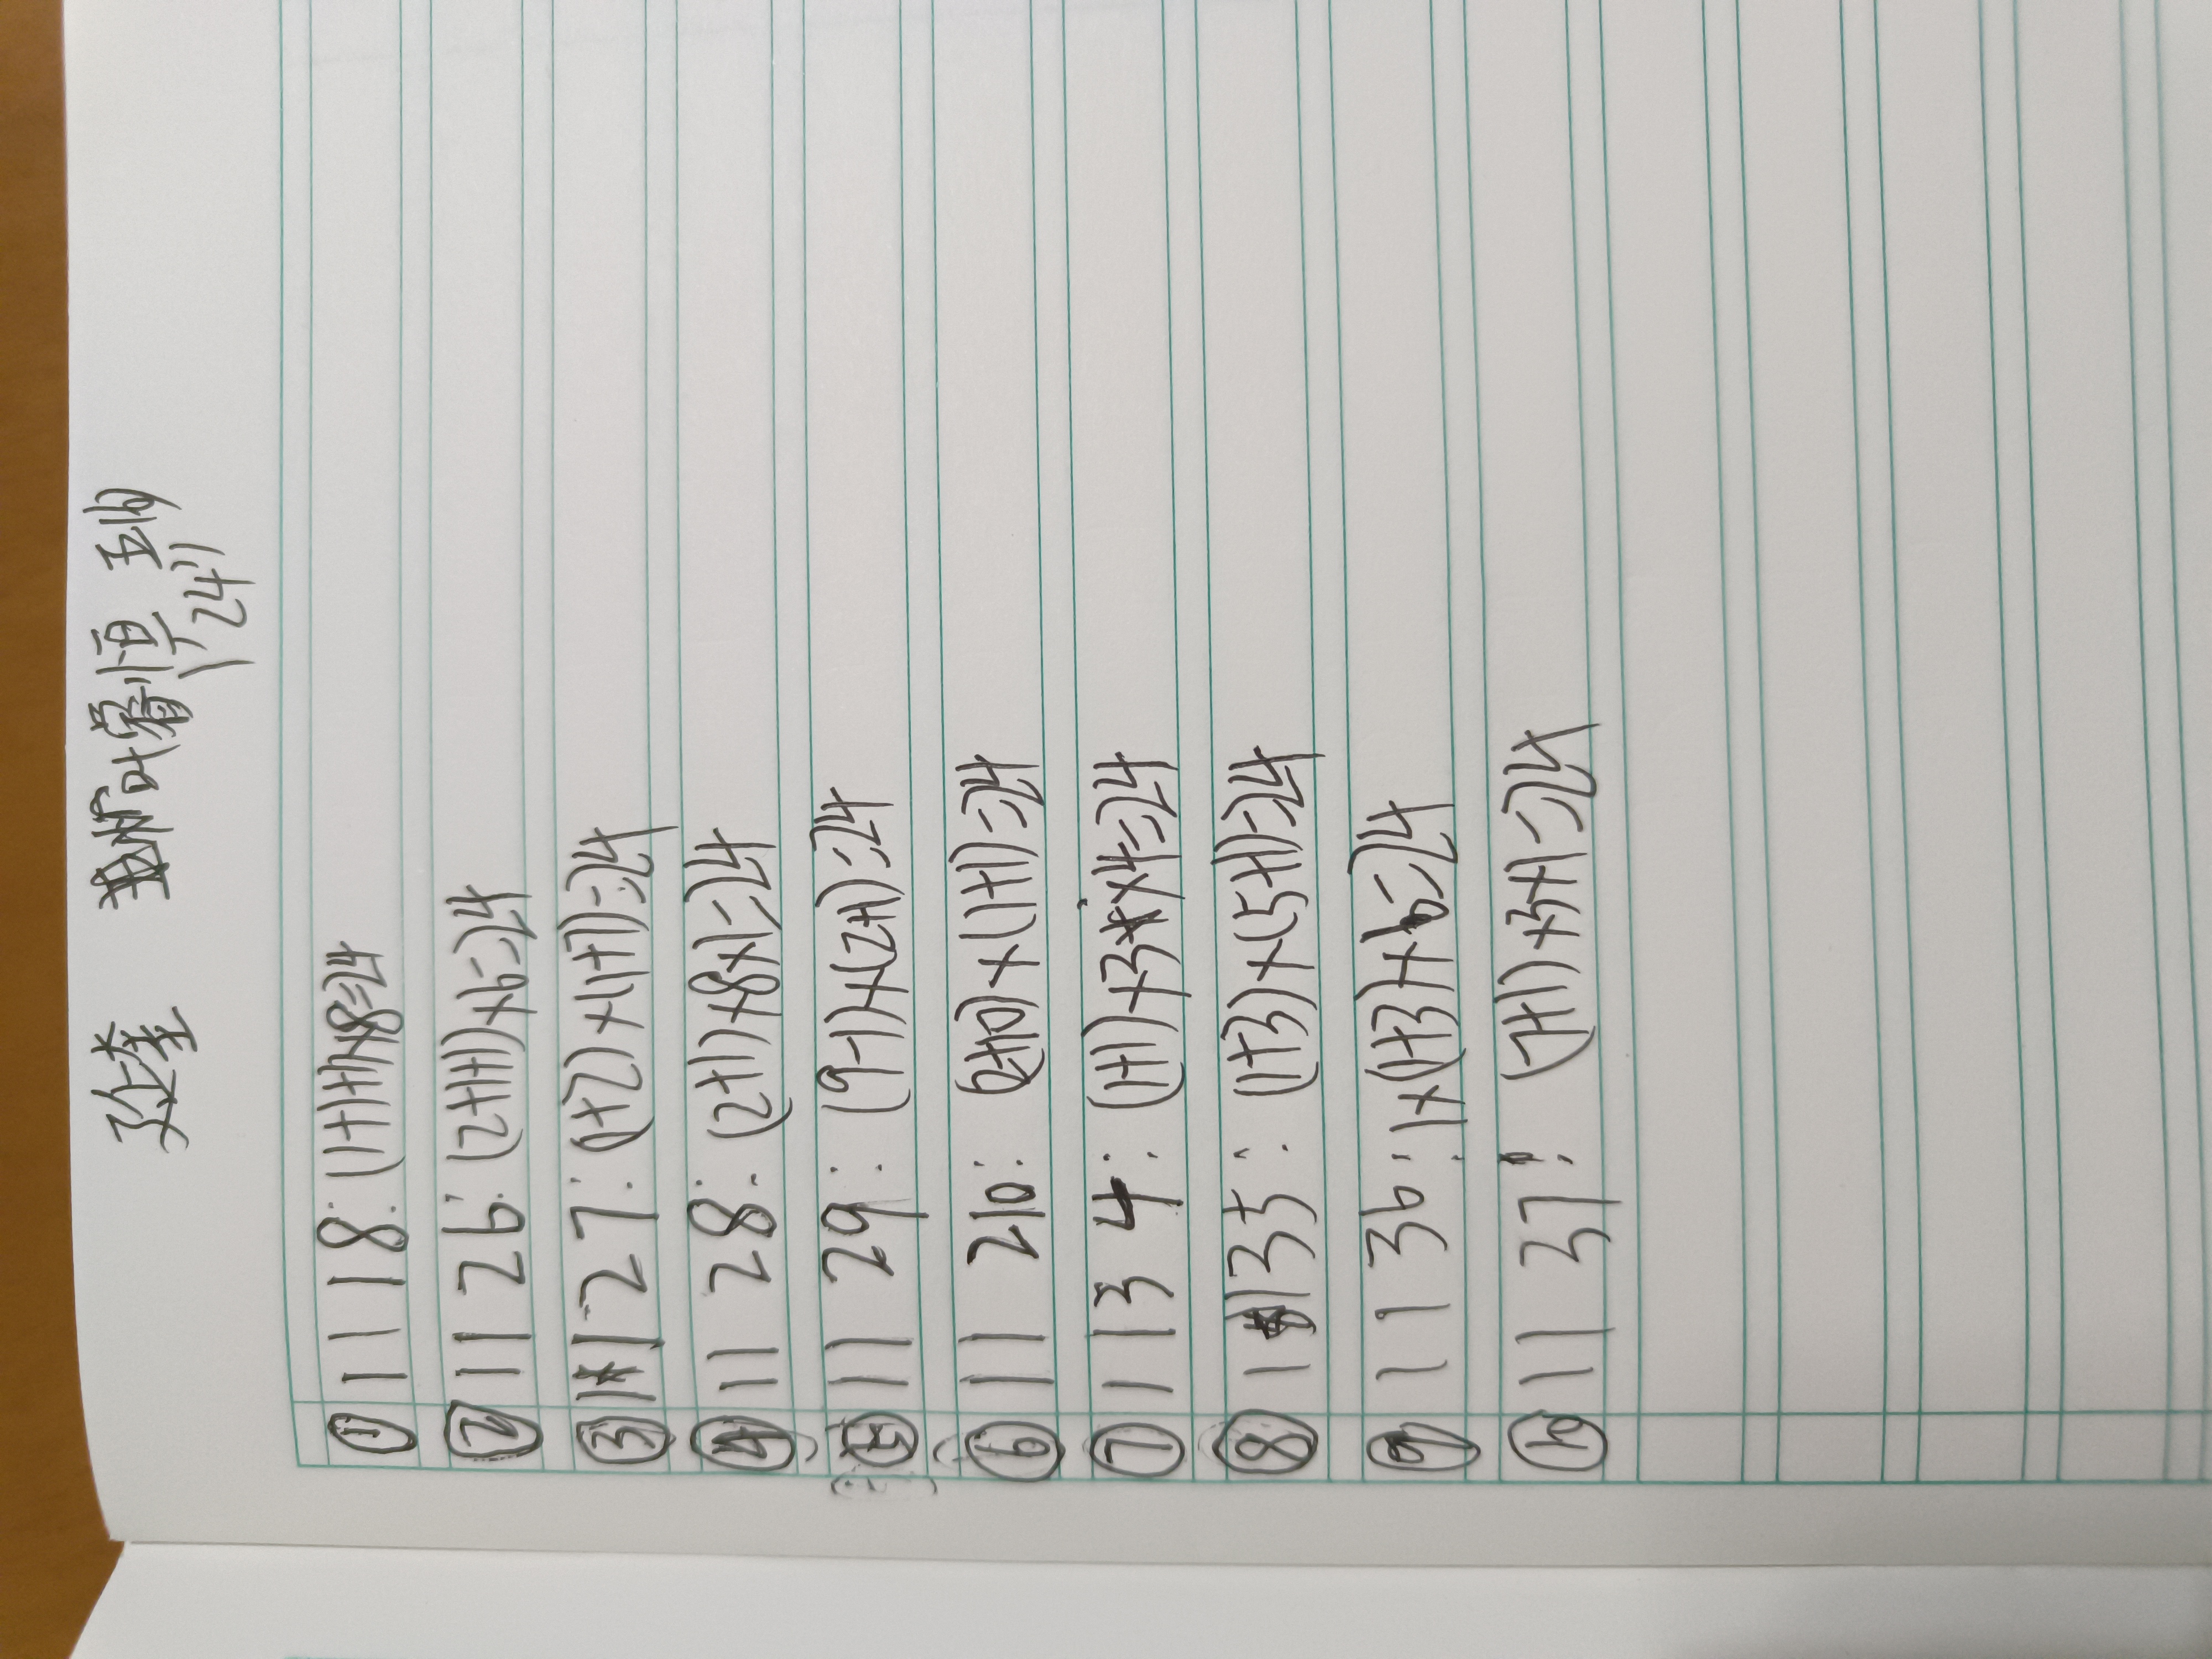 ①1 1 1 8:(1+1+1)×8=24
②1 1 2 6:(2+1+1)×6=24
③1 1 2 7:(1+2)×(1+7)=24
④1 1 2 8:(2+1)×8×1=24
⑤1 1 2 9:(9-1)×(2+1)=24
⑥1 1 2 10:(2+10)×(1+1)=24
⑦1 1 3 4:(1+1)×3×4=24
⑧1 1 3 5:(1+3)×(5+1)=24
⑨1 1 3 6:1×(1+3)×6=24
⑩1 1 3 7:(7+1)×3×1=24